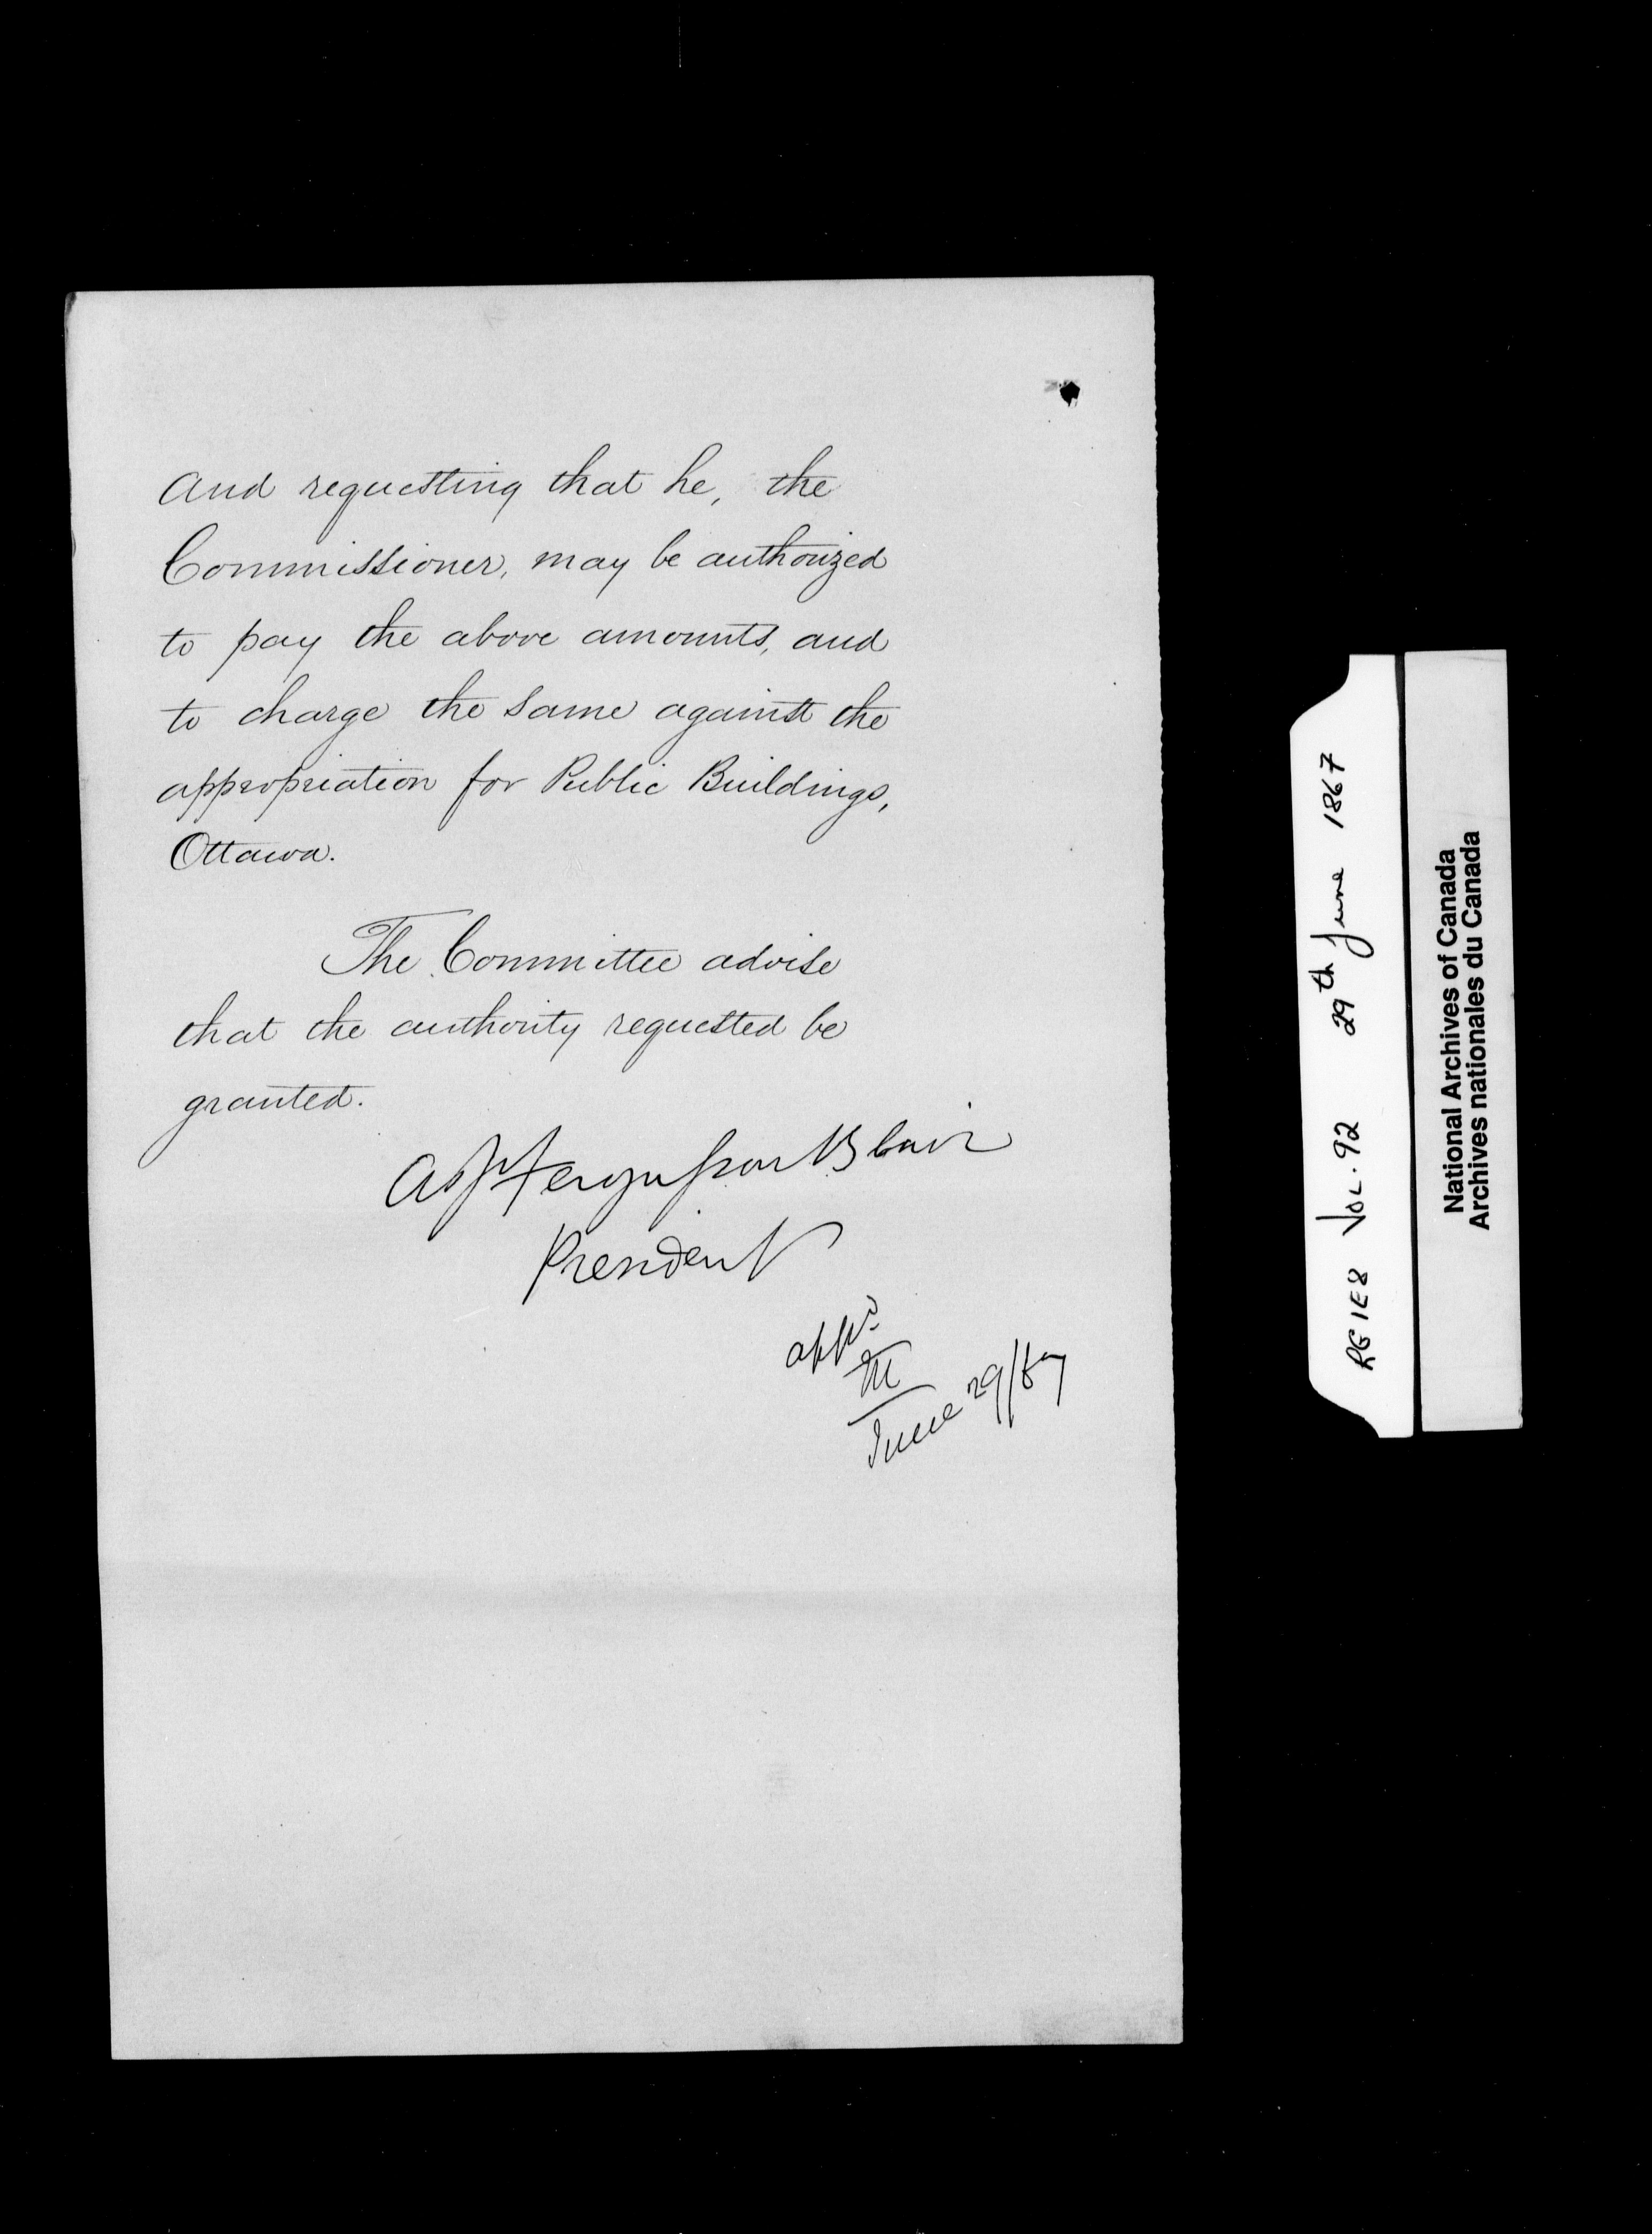 and requesting that he, the
Commissioner, may be authorized
to pay the above amounts, and
to charge the same against the
appropriation for Public Buildings,
Ottawa.
The Committee advise
that the authority requested be
granted.
Fergusson Blair
President
appd
M
June 29/67
RG 1E8 VOL. 92 29th June 1867
National Archives of Canada
Archives nationales du Canada